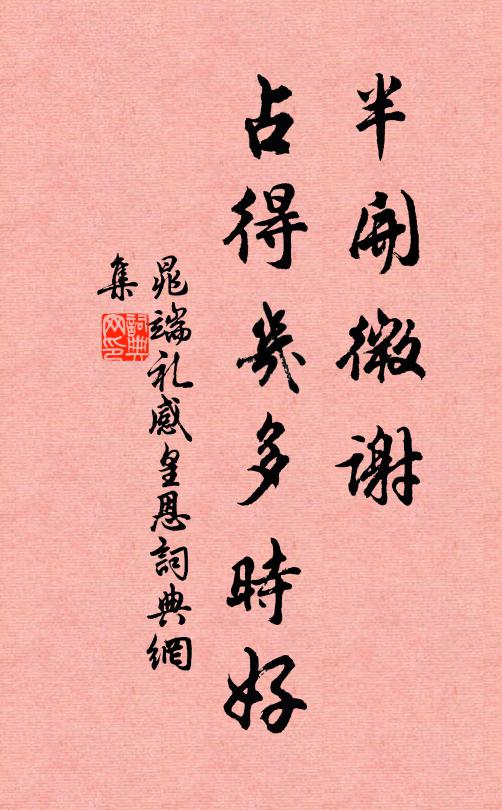 半開微謝
占得幾多時好
晁端礼感皇恩詞典網
集
詞典
网印